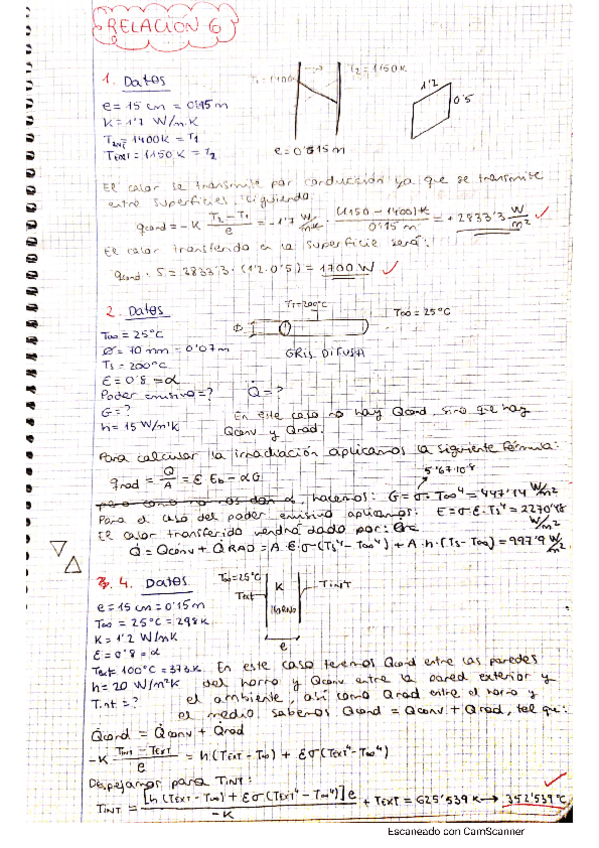 RELACIÓN 6
1. Datos
e = 15 cm = 0'15 m
K = 1'7 W/m·K
T_INT = 1400K = T1
T_EXT = 1150K = T2
T1 = 1400
T2 = 1150K
e = 0'15 m
1'2
0'5
El calor se transmite por conducción ya que se transmite
entre superficies, siguiendo:
qcond = -K (T2 - T1)/e = -1'7 W/mK · (1150 - 1400)K/0'15 m = + 2833'3 W/m²
El calor transferido en la superficie será:
qcond · S = 2833'3 · (1'2 · 0'5) = 1700 W
2. Datos
T∞ = 25°C
Ø = 70 mm = 0'07m
Ts = 200°C
ε = 0'8 = α
Poder emisivo = ?
G = ?
h = 15 W/m²K
Ts = 200°C
T∞ = 25°C
GRIS DIFUSA
Q̇ = ?
En este caso no hay Qcond, sino que hay
Qconv y Qrad.
Para calcular la irradiación aplicamos la siguiente fórmula:
qrad = Q/A = ε Eb - αG
5'67·10⁻⁸
hacemos: G = σ·T∞⁴ = 447'14 W/m²
Para el caso del poder emisivo aplicamos: E = σ·ε·Ts⁴ = 2270'48 W/m²
El calor transferido vendrá dado por:
Q̇ = Qconv + Q̇RAD = A·ε·σ(Ts⁴ - T∞⁴) + A·h·(Ts - T∞) = 997'9 W/m²
4. Datos
e = 15 cm = 0'15 m
T∞ = 25°C = 298K
K = 1'2 W/mK
ε = 0'8 = α
Text = 100°C = 373K
h = 20 W/m²K
Tint = ?
T∞ = 25°C
Text
K
HORNO
TINT
e
En este caso tenemos Qcond entre las paredes
del horno y Qconv entre la pared exterior y
el ambiente, así como Qrad entre el horno y
el medio. Sabemos Qcond = Qconv + Qrad, tal que:
Q̇cond = Q̇conv + Q̇rad
-K (Tint - TEXT)/e = h(TEXT - T∞) + εσ(TEXT⁴ - T∞⁴)
Despejamos para TINT:
TINT = [h(TEXT - T∞) + εσ(TEXT⁴ - T∞⁴)]e/-K + TEXT = 625'539K → 352'539°C
Escaneado con CamScanner